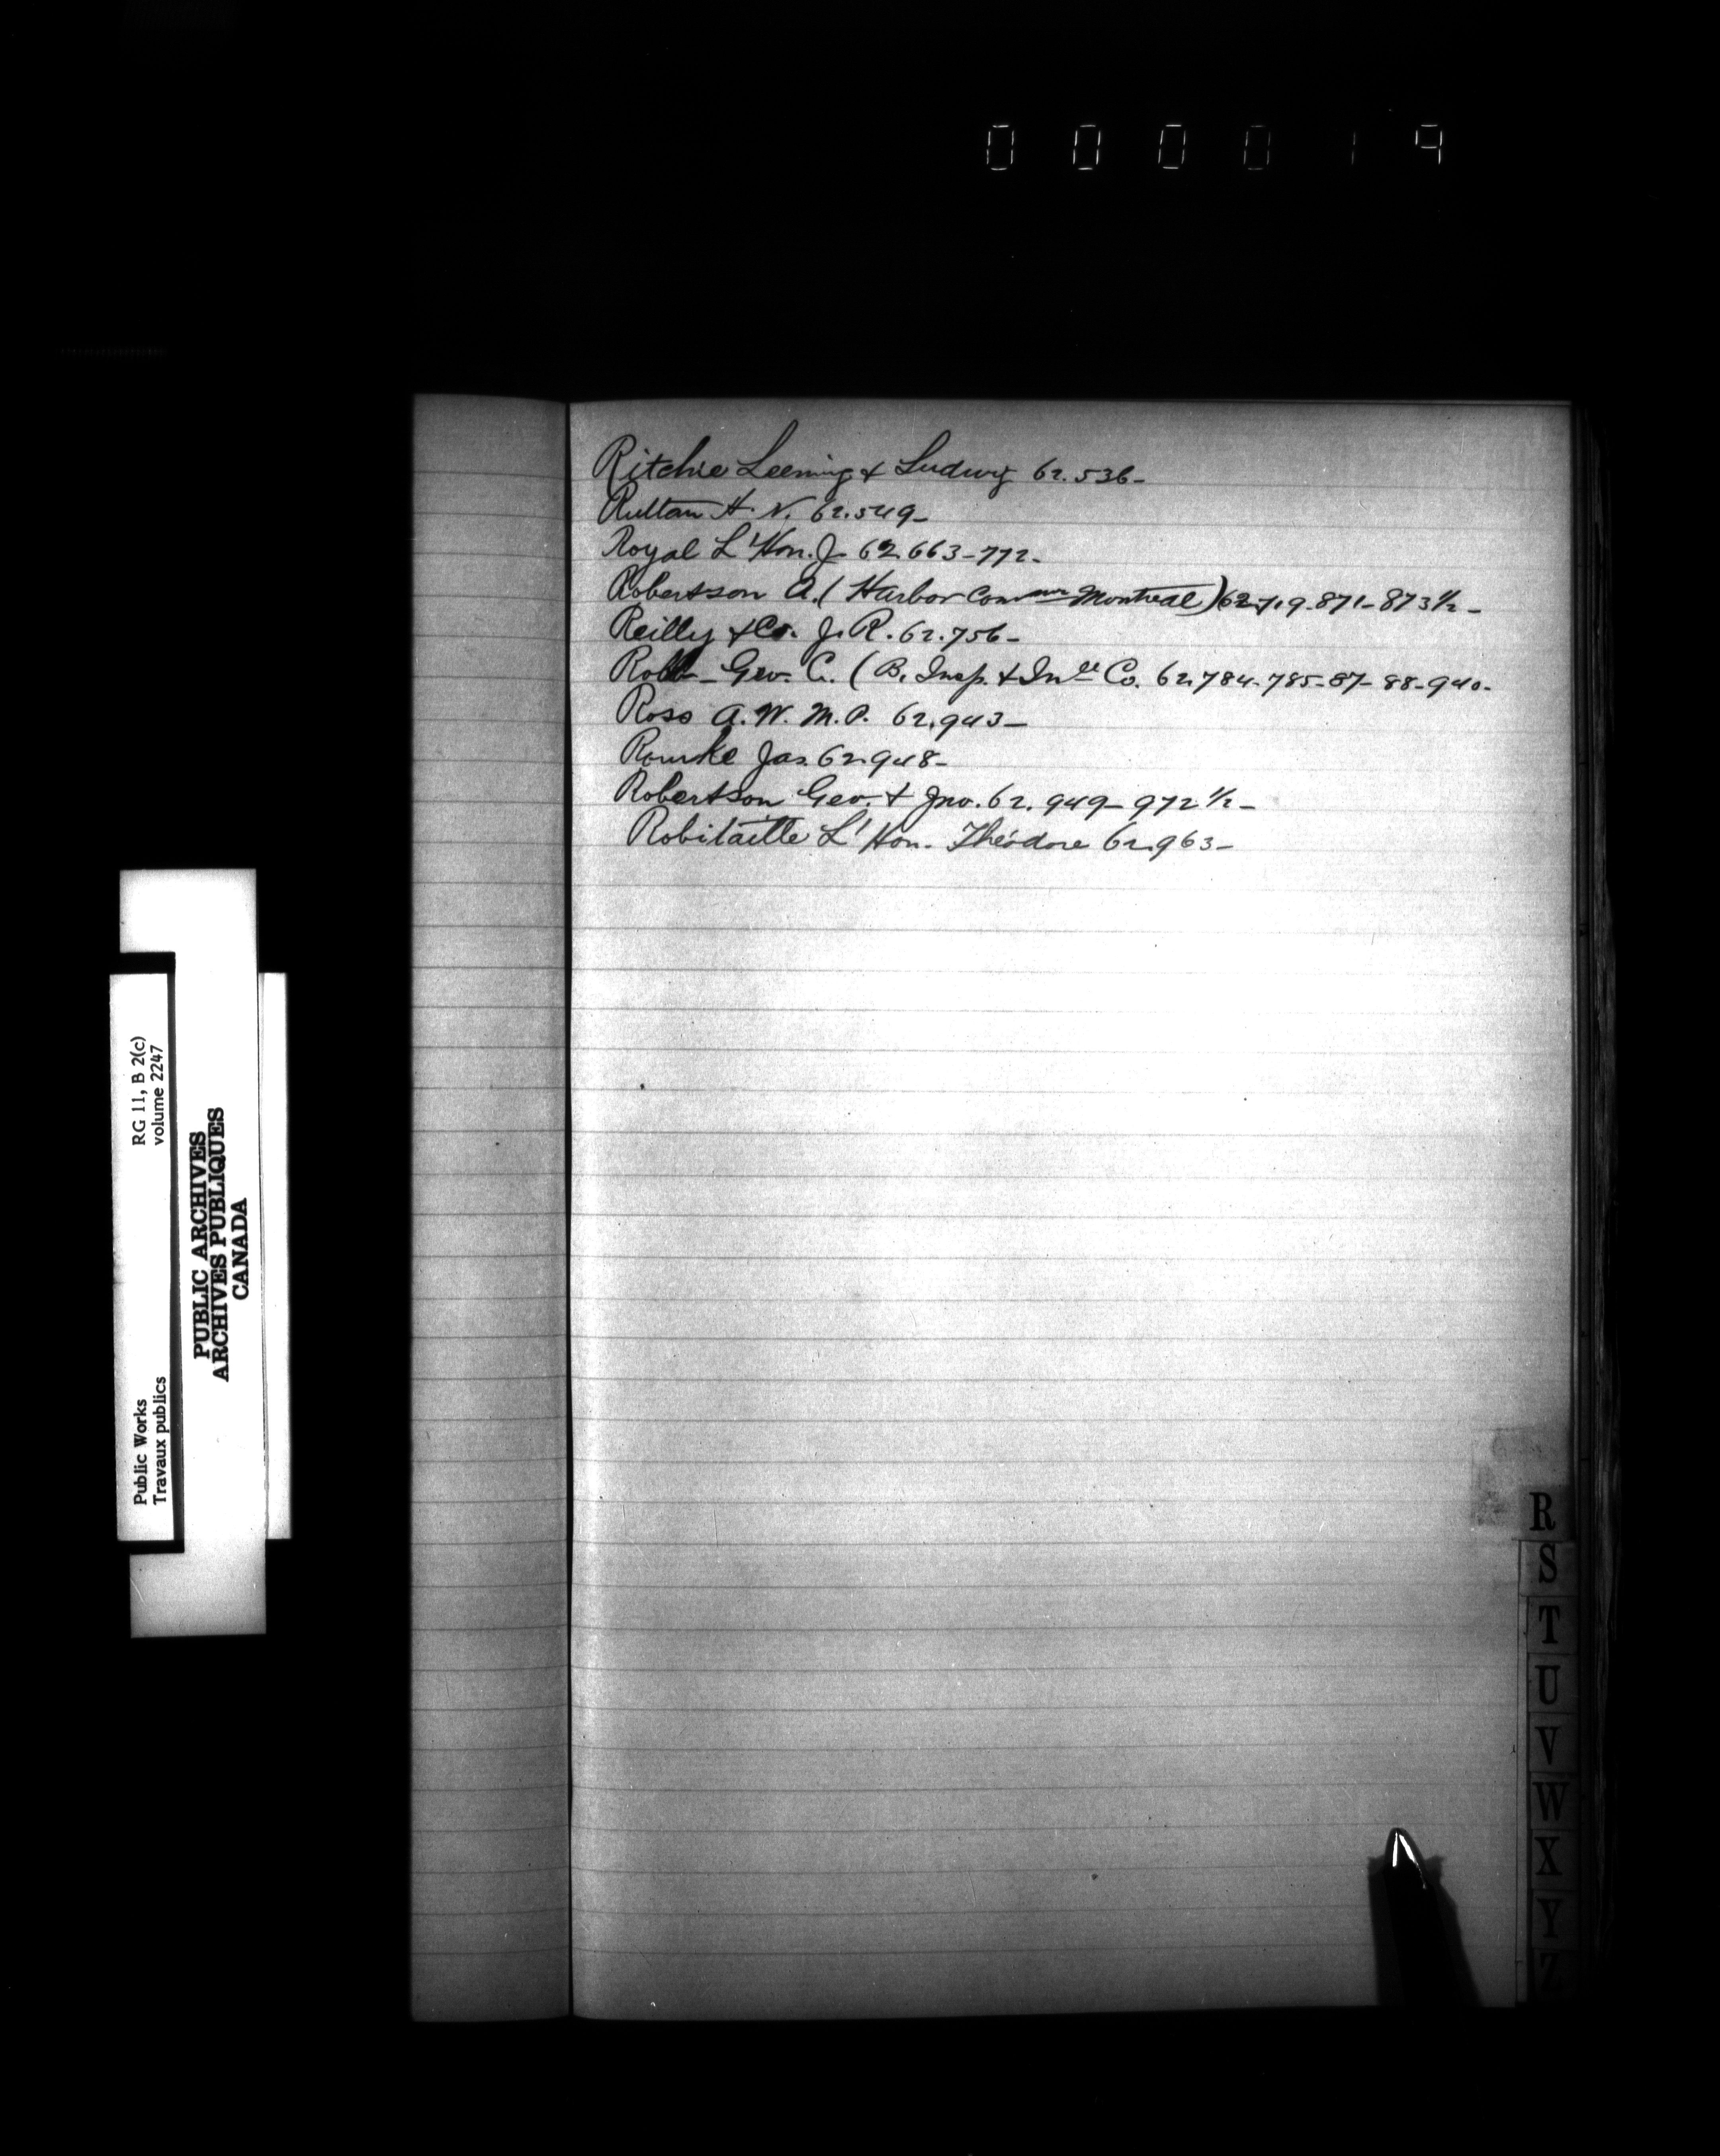 000019
Ritchie Leeming & Ludwig 62.536-
Ruttan H. N. 62.549-
Royal L'Hon. J- 62 663-772-
Robertson A. ( Harbor Commr Montreal) 62719-871-873½-
Reilly & Co. J. R. 62.756-
Robb- Geo. C. ( B. Insp. & Insce Co. 62.784-785-87-88-940-
Ross A. W. M. P. 62.943-
Rourke Jas. 62.948-
Robertson Geo. & Jno. 62. 949-972½-
Robitaille L'Hon. Théodore 62.963-
Public Works
Travaux publics
RG 11, B 2(c)
volume 2247
PUBLIC ARCHIVES
ARCHIVES PUBLIQUES
CANADA
R
S
T
U
V
W
X
Y
Z